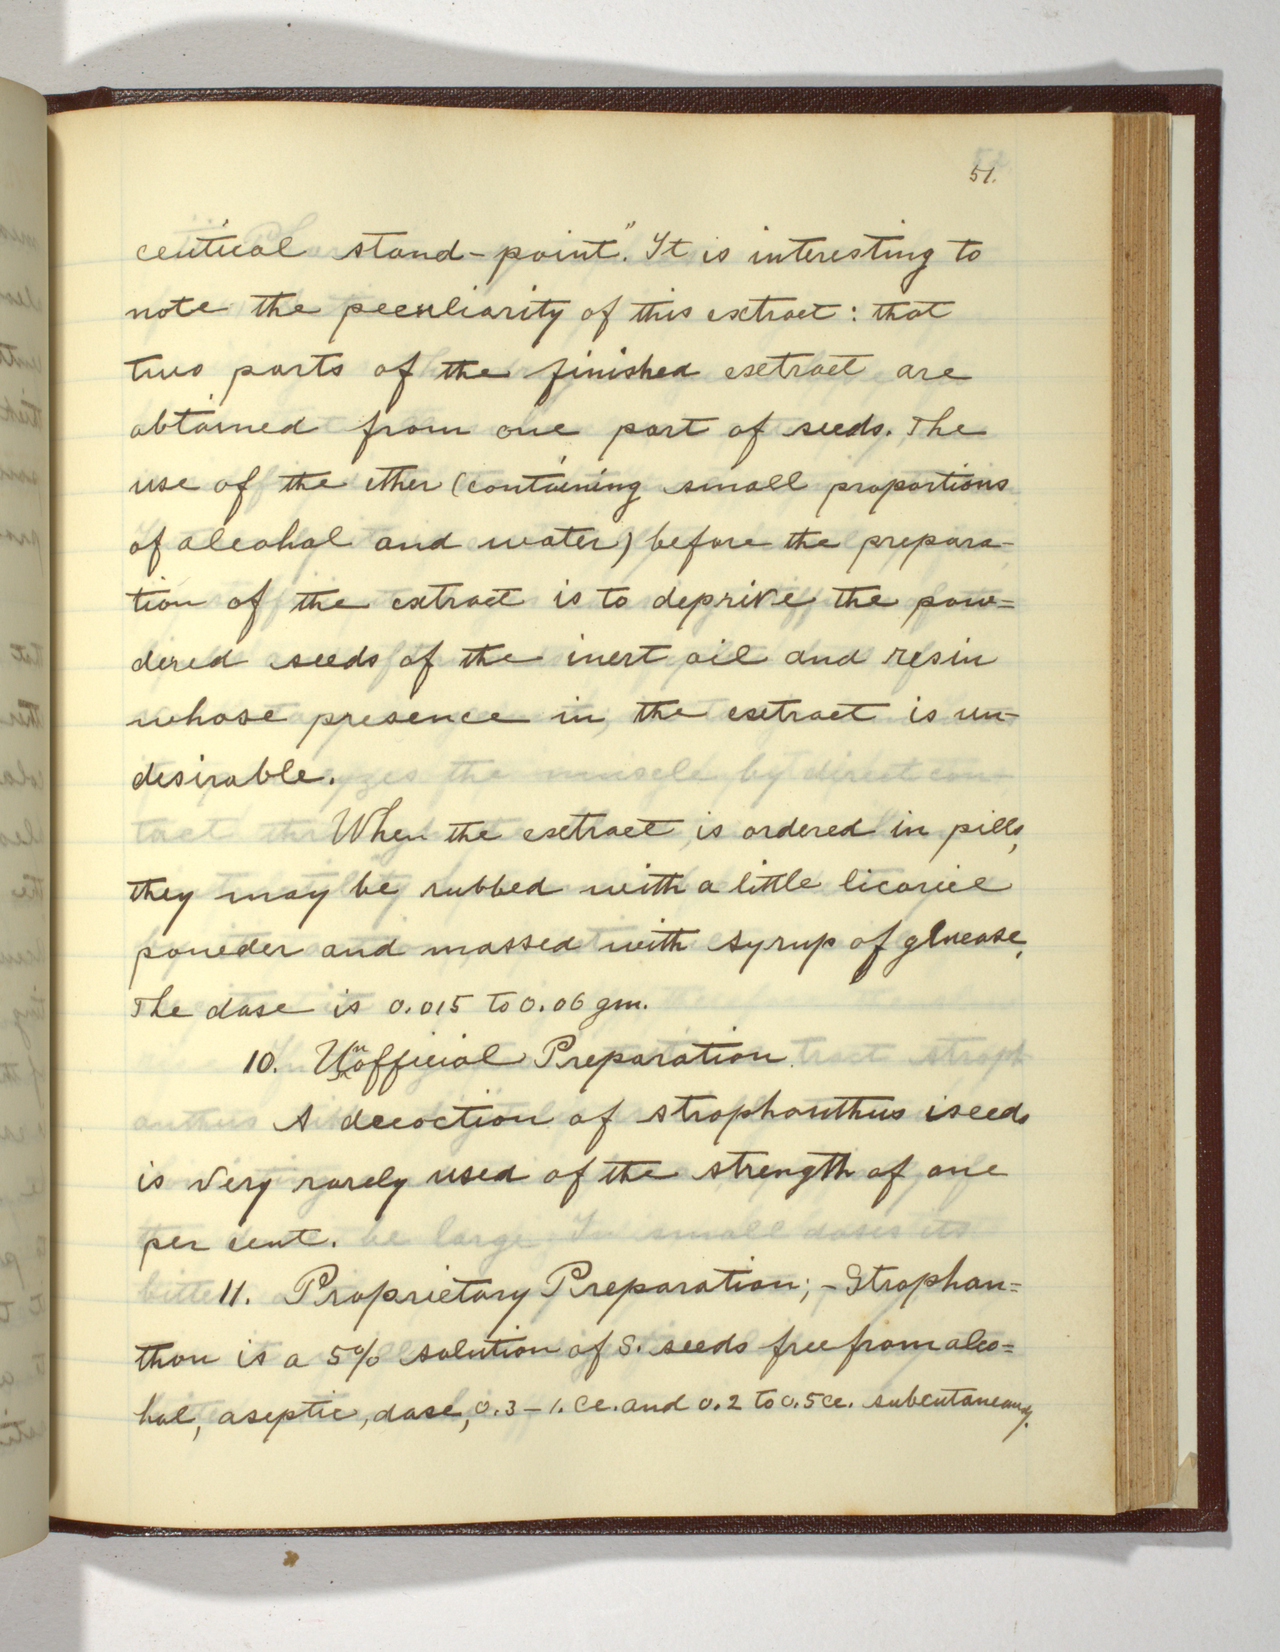 51.
ceutical stand-point." It is interesting to
note the peculiarity of this extract: that
two parts of the finished extract are
obtained from one part of seeds. The
use of the ether (containing small proportions
of alcohol and water) before the prepara-
tion of the extract is to deprive the pow=
dered seeds of the inert oil and resin
whose presence in the extract is un-
desirable.
When the extract is ordered in pills,
they may be rubbed with a little licorice
powder and massed with syrup of glucose.
The dose is 0.015 to 0.06 gm.
10. Unofficial Preparation
A decoction of strophanthus seeds
is very rarely used of the strength of one
per cent.
11. Proprietary Preparation; - Strophan=
thon is a 5% solution of S. seeds free from alco=
hol, aseptic, dose, 0.3 - 1. cc. and 0.2 to 0.5 cc. subcutaneously.